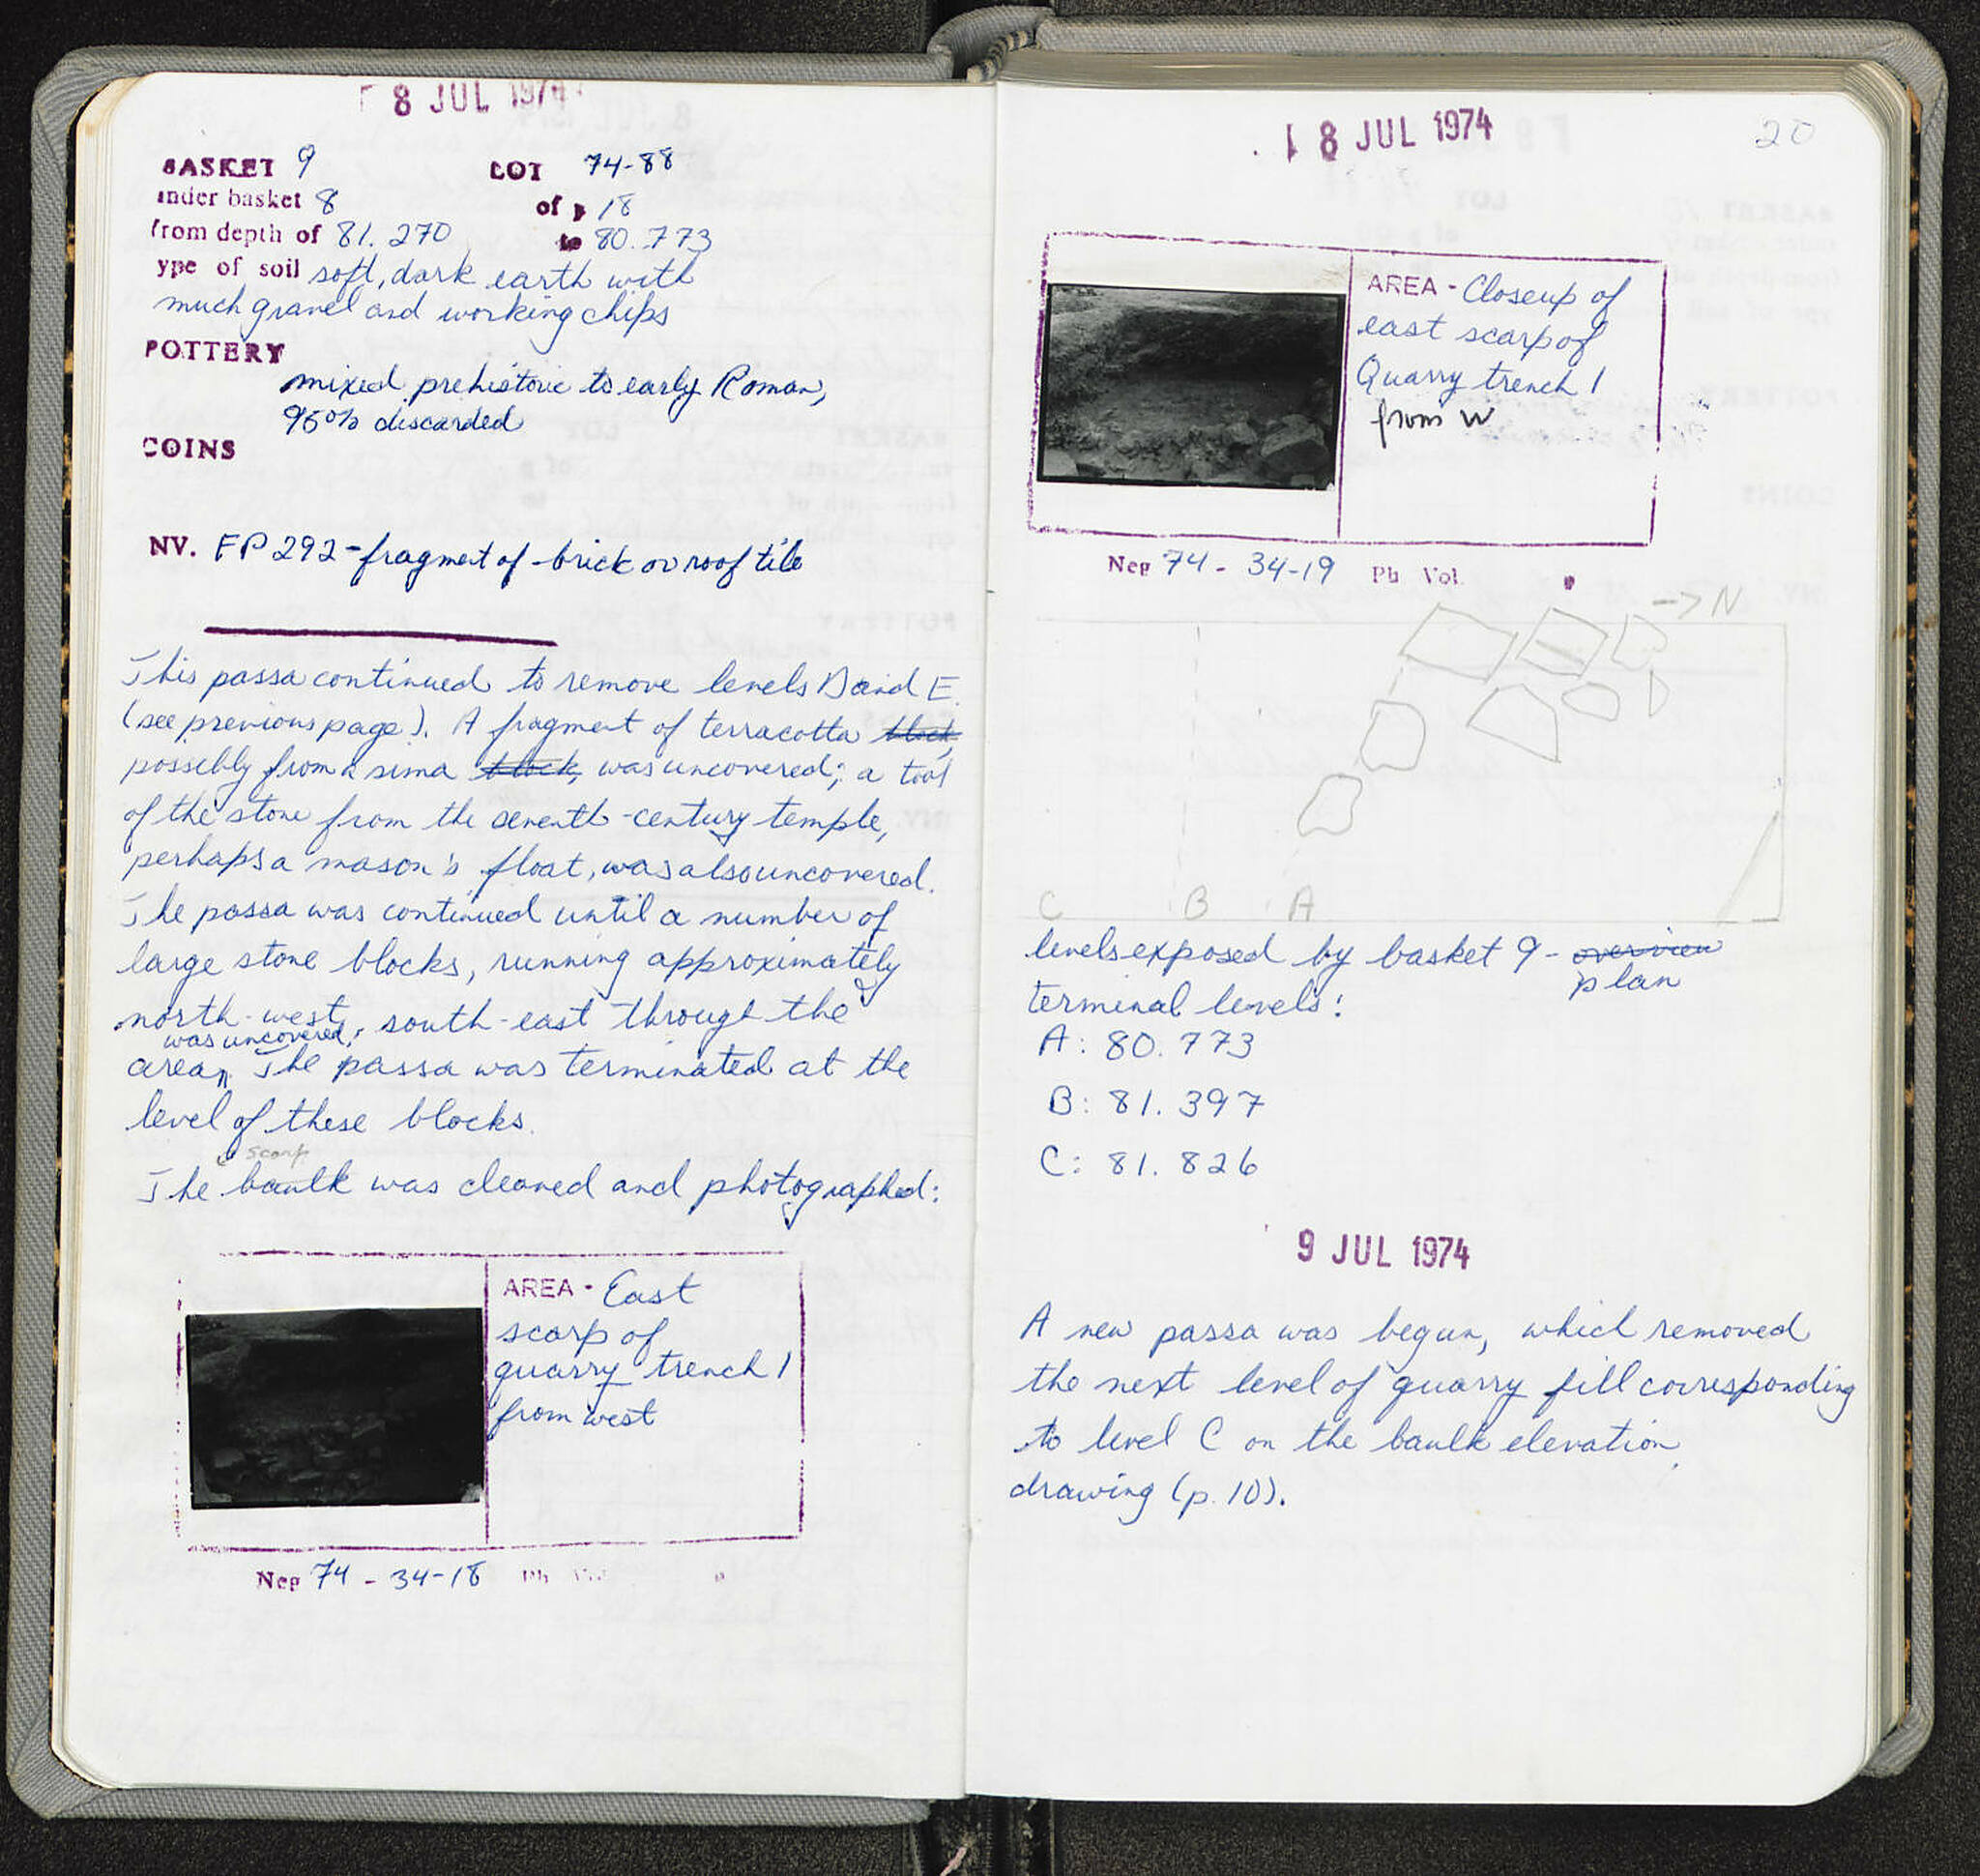 8 JUL 1974
BASKET 9 LOT 74-88
under basket 8 of p 18
from depth of 81.270 to 80.773
ype of soil soft, dark earth with
much gravel and working chips
POTTERY
mixed prehistoric to early Roman,
95% discarded
COINS
NV. FP 292 - fragment of brick or roof tile
This passa continued to remove levels D and E
(see previous page). A fragment of terracotta block,
possibly from a sima block, was uncovered; a tool
of the stone from the seventh-century temple,
perhaps a mason's float, was also uncovered.
The passa was continued until a number of
large stone blocks, running approximately
north-west, south-east through the
was uncovered;
area. The passa was terminated at the
level of these blocks.
scarp
The baulk was cleaned and photographed:
AREA - East
scarp of
quarry trench 1
from west
Neg 74 - 34-18 Ph Vol p
8 JUL 1974 20
AREA - Closeup of
east scarp of
Quarry trench 1
from W
Neg 74 - 34-19 Ph Vol. p
-> N
C B A
levels exposed by basket 9 - overview
plan
terminal levels:
A: 80.773
B: 81.397
C: 81.826
9 JUL 1974
A new passa was begun, which removed
the next level of quarry fill corresponding
to level C on the baulk elevation
drawing (p. 10).